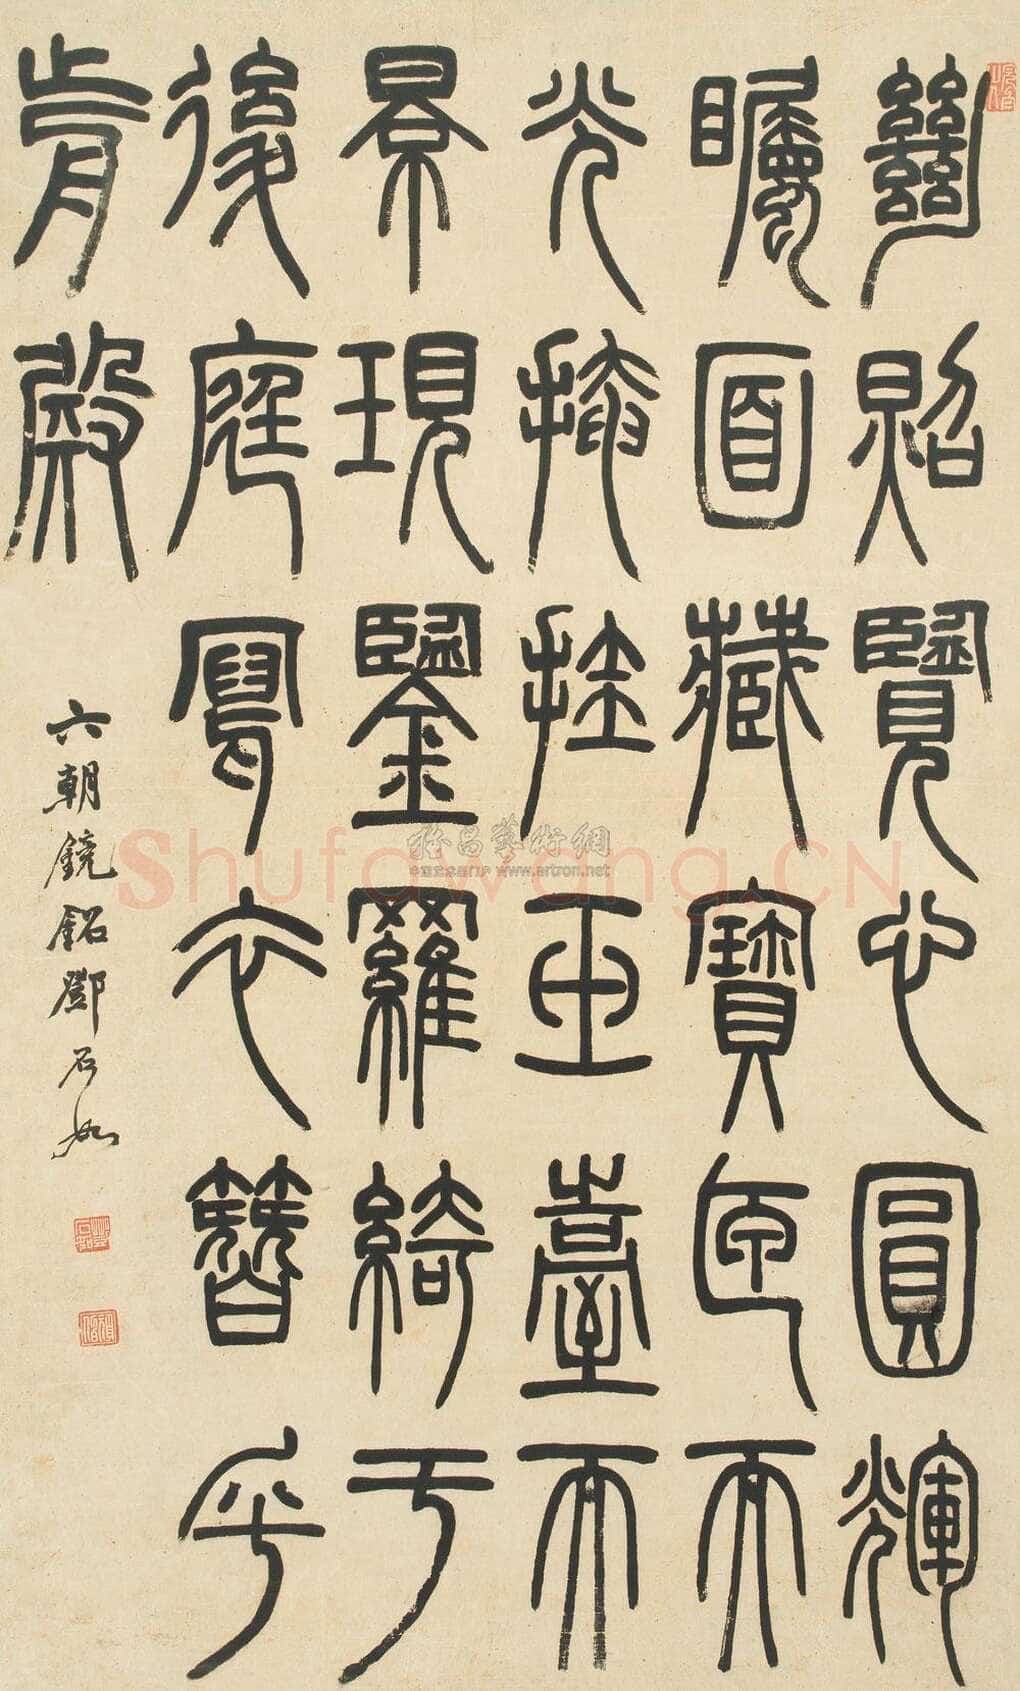 絕照覽心圓輝
矚面藏寶匣而
光掩挂玉臺而
景現鑒羅綺于
後庭寫衣簪乎
前殿
六朝鏡銘鄧石如
鄧石如
頑伯
Shufawang.CN
雅昌藝術網
www.artron.net